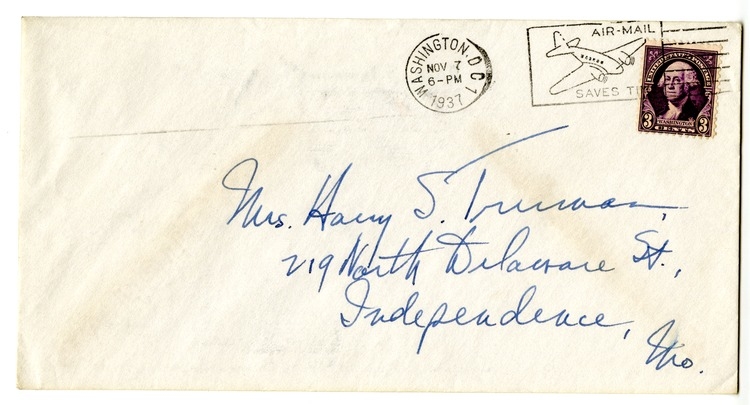 WASHINGTON, D.C. 1
NOV 7
6-PM
1937
AIR-MAIL
SAVES TI
UNITED STATES POSTAGE
3 WASHINGTON 3
CENTS
Mrs. Harry S. Truman,
219 North Delaware St.,
Independence,
Mo.